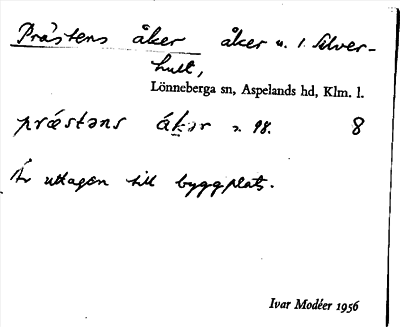 Prästens åker åker u. 1 Silver-
hult,
Lönneberga sn, Aspelands hd, Klm. l.
prǽstəns ákər s. 98. 8
Är uttagen till byggplats.
Ivar Modéer 1956